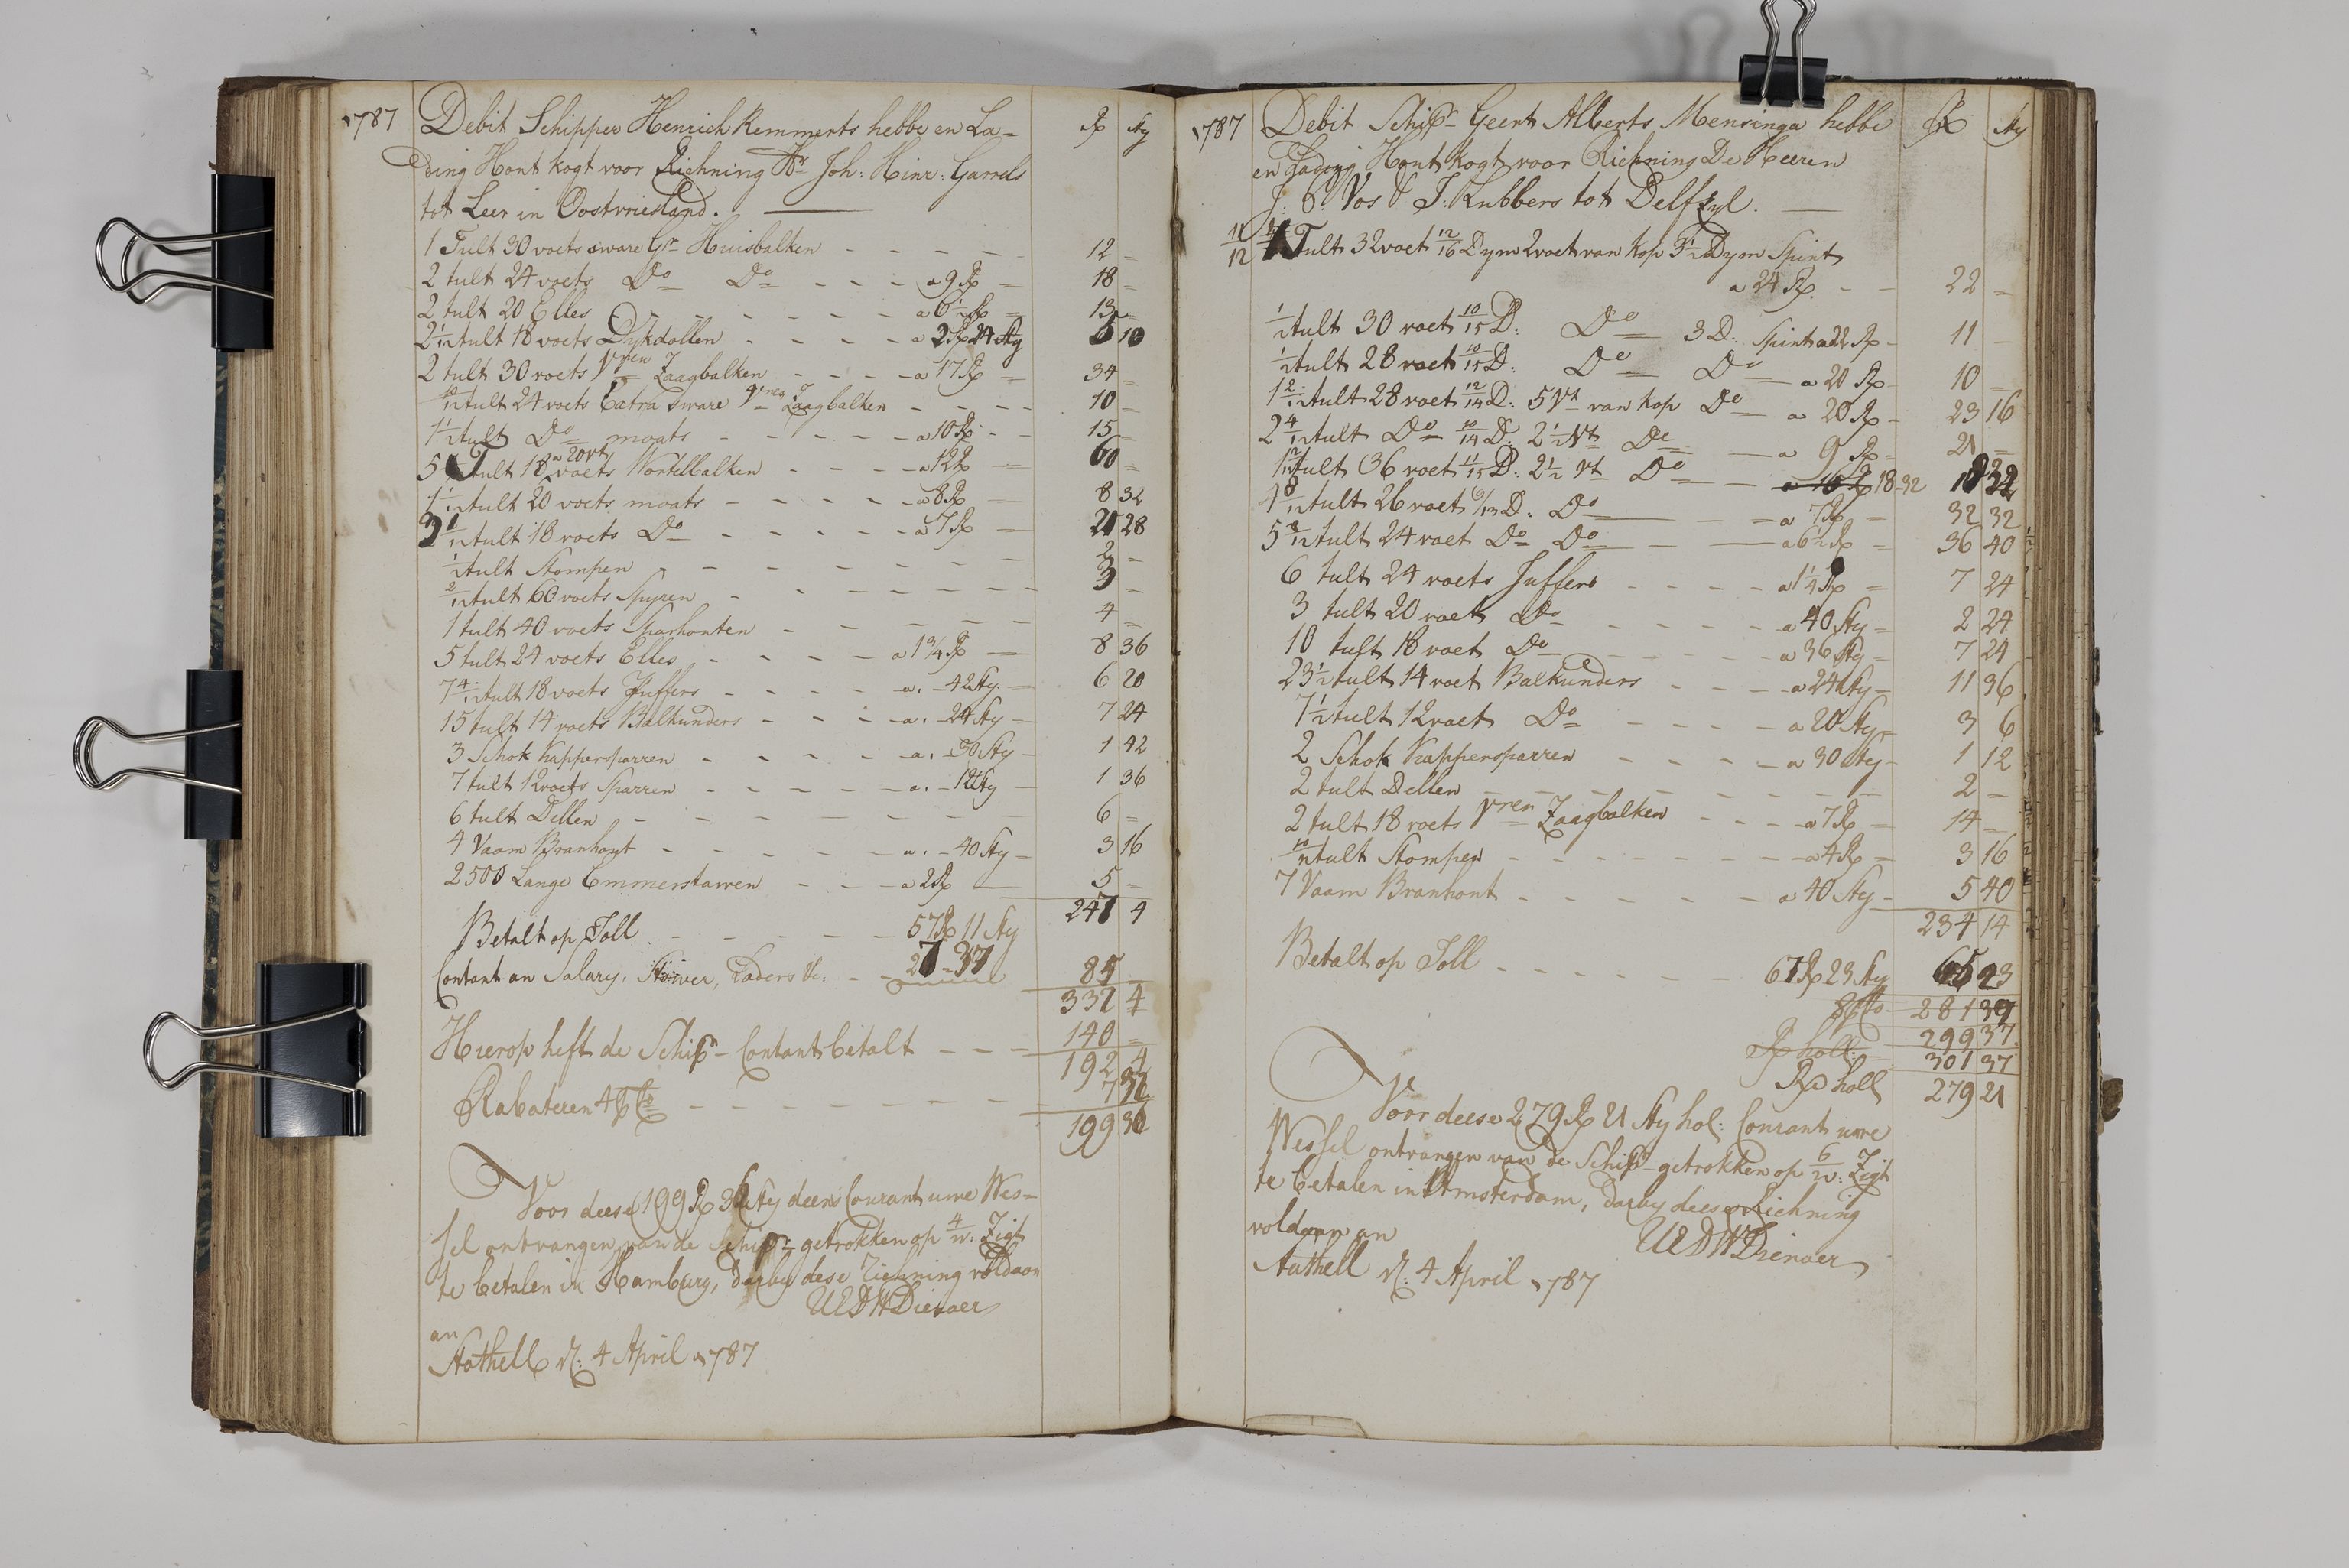 1787 Debit Schipper Henrich Remmerts hebbe en La= R Sty
ding Hout kogt voor Riehning Hr Joh: Hinr: Garrels
tot Leer in Oostvriesland.
1 Tult 30 voets sware Gr Huisbalken 12 =
2 tult 24 voets Do Do a 9 R 18 =
2 tult 20 Elles a 6½ R 13 =
2 1/12 tult 18 voets Dykdollen a 2 R 24 Sty 5 10
2 tult 30 voets Vren Zaagbalken a 17 R 34 =
10/12 tult 24 voets Extra sware Vren Zaagbalken 10 =
1½ tult Do moats a 10 R 15 =
5 Tult 18 a 20 vt voets Wortelbalken a 12 R 60 =
1 1/12 tult 20 voets moats a 8 R 8 32
3 1/12 tult 18 voets Do a 7 R 21 28
½ tult Stompen 2 =
2/12 tult 60 voets Spyren 3 =
1 tult 40 voets Sparhouten 4 =
5 tult 24 voets Elles a 1 3/4 R 8 36
7 4/12 tult 18 voets Juffers a. - 42 Sty 6 20
15 tult 14 voets Balkunders a. - 24 Sty 7 24
3 Schok Kappersparren a. - 30 Sty 1 42
7 tult 12 voets Sparren a. - 12 Sty 1 36
6 tult Dellen 6 =
4 Vaam Branhout a. - 40 Sty 3 16
2500 Lange Emmerstawen a 2 R 5 =
247 4
Betalt op Toll 57 R 11 Sty
Contant an Salary, Stöwer, Laders &c: 27 - 37 85 =
332 4
Hierop heft de Schipr Contant betalt 140 =
192 4
Rabateren 4 P Co 7 32
199 36
Voor deese 199 R 36 Sty deens Courant uwe Wes=
sel ontvangen van de Schipr getrokken op 4/w: Zigt
te betalen in Hamburg, darby dese Riehning voldaan
UEDWDienaer
an
Stathell d: 4 April 1787
1787 Debit Schipr Geert Alberts Mensinga hebbe R Sty
en Lading Hout kogt voor Riehning De Heeren
J: C: Vos & J: Kubbers tot Delfzyl.
11/12 Tult 32 voet 12/16 Dym 2 voet van kop 3½ Dym Spint
a 24 R. 22 =
½ tult 30 voet 10/15 D: Do 3 D: Spint a 22 R 11 =
½ tult 28 voet 10/15 D: Do Do a 20 R 10 =
1 2/12 tult 28 voet 12/14 D: 5 Vt van kop Do a 20 R 23 16
2 4/12 tult Do 10/14 D: 2½ Vt Do a 9 R 21 =
tult 36 voet 11/15 D: 2½ Vt Do 18-32 18 32
4 8/12 tult 26 voet 9/13 D: Do a 7 R 32 32
5 8/12 tult 24 voet Do Do a 6½ R 36 40
6 tult 24 voets Juffers a 1¼ R 7 24
3 tult 20 voet Do a 40 Sty 2 24
10 tult 18 voet Do a 36 Sty 7 24
23½ tult 14 voet Balkunders a 24 Sty 11 36
7½ tult 12 voet Do a 20 Sty 3 6
2 Schok Kappersparren a 30 Sty 1 12
2 tult Dellen 2 =
2 tult 18 voets Vren Zaagbalken a 7 R 14 =
10/12 tult Stompen a 4 R 3 16
7 Vaam Branhout a 40 Sty 5 40
234 14
Betalt op Toll 67 R 23 Sty 65 23
281 39
299 37
R holl: 301 37
R holl 279 21
Voor deese 279 R 21 Sty hol: Courant uwe
Wessel ontvangen van de Schipr getrokken op 6/w: Zigt
te betalen in Amsterdam, darby deese Riehning
voldaan an UEDWDienaer
Stathell d: 4 April 1787